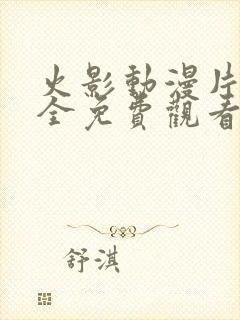 火影動漫片
全免費觀看
舒淇